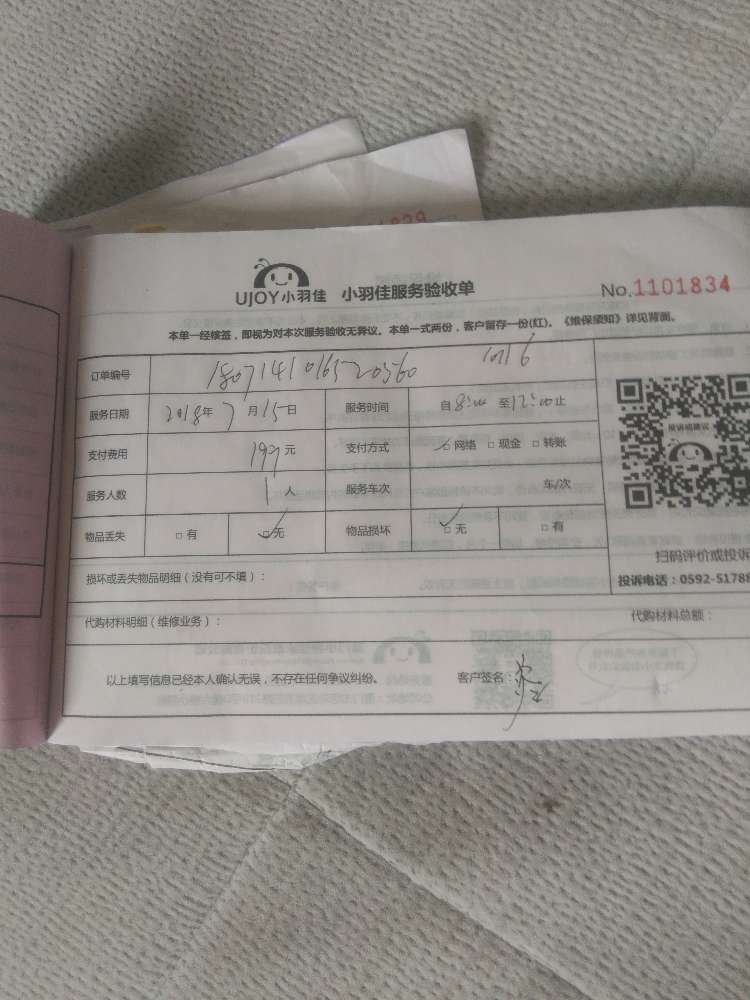 UJOY小羽佳 小羽佳服务验收单 No.1101834
本单一经核签，即视为对本次服务验收无异议。本单一式两份，客户留存一份(红)。《维保须知》详见背面。
订单编号 18071410165720560 1016
服务日期 2018年7月15日 服务时间 自8:00至12:00止
支付费用 197元 支付方式 ☑网络 □现金 □转账
服务人数 1人 服务车次 车/次
物品丢失 □有 ☑无 物品损坏 ☑无 □有
投诉或建议
扫码评价或投诉
损坏或丢失物品明细（没有可不填）：
投诉电话：0592-5178
代购材料明细（维修业务）： 代购材料总额：
以上填写信息已经本人确认无误，不存在任何争议纠纷。 客户签名：